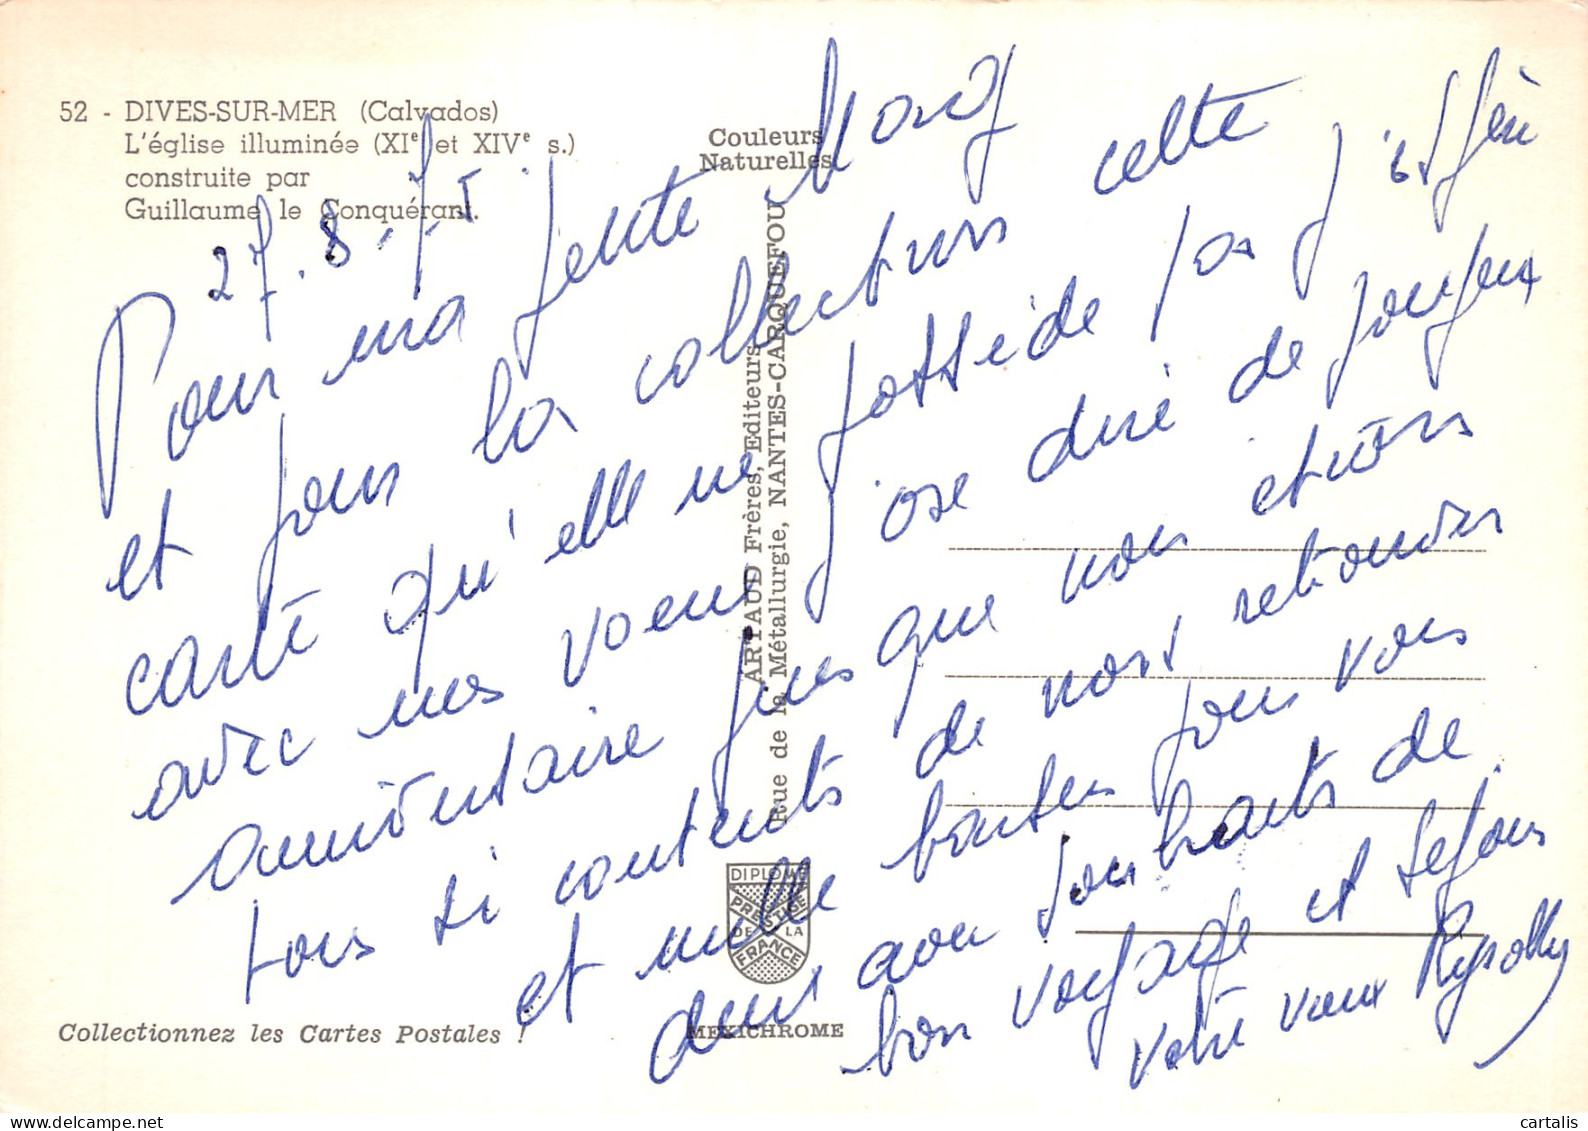 52 - DIVES-SUR-MER (Calvados)
L'église illuminée (XIe et XIVe s.)
construite par
Guillaume le Conquérant.
Couleurs
Naturelles
27.8.75
Pour ma petite
et pour la collection cette
carte qu'elle ne possède pas j'espère
avec mes voeux j'ose dire de joyeux
anniversaire puisque nous étions
tous si contents de nous retrouver
et mille bonnes pour vous
deux avec souhaits de
bon voyage et séjour
votre vieux
ARTAUD Frères, Editeurs
Rue de la Métallurgie, NANTES-CARQUEFOU
DIPLOME
PRESTIGE
DE LA
FRANCE
MEXICHROME
Collectionnez les Cartes Postales !
cartalis